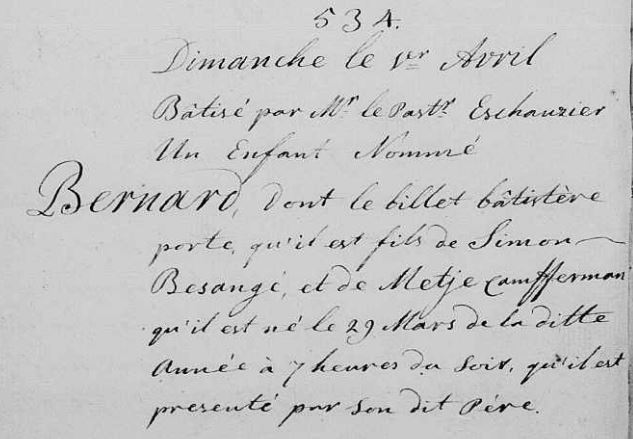 534.
Dimanche le 1er Avril
Bâtisé par Mr le Pastr Eschauzier
Un Enfant Nommé
Bernard, dont le billet bâtistère
porte, qu'il est fils de Simon
Besangé, et de Metje Camfferman
qu'il est né le 29 Mars de la ditte
Année à 7 heures du Soir, qu'il est
presenté par Son dit Pére.